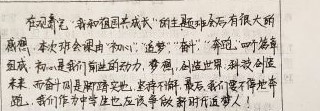 在观看完“我和祖国共成长”的主题班会后有很大的
感想。本次班会课由“初心”“追梦”“奋斗”“奔跑”四个篇章
组成,初心是我们前进的动力,梦想,创造世界,科技创造
未来,而奋斗则是脚踏实地,坚持不懈,最后,我们要不停地奔
跑,我们作为中学生也应该争做新时代追梦人!